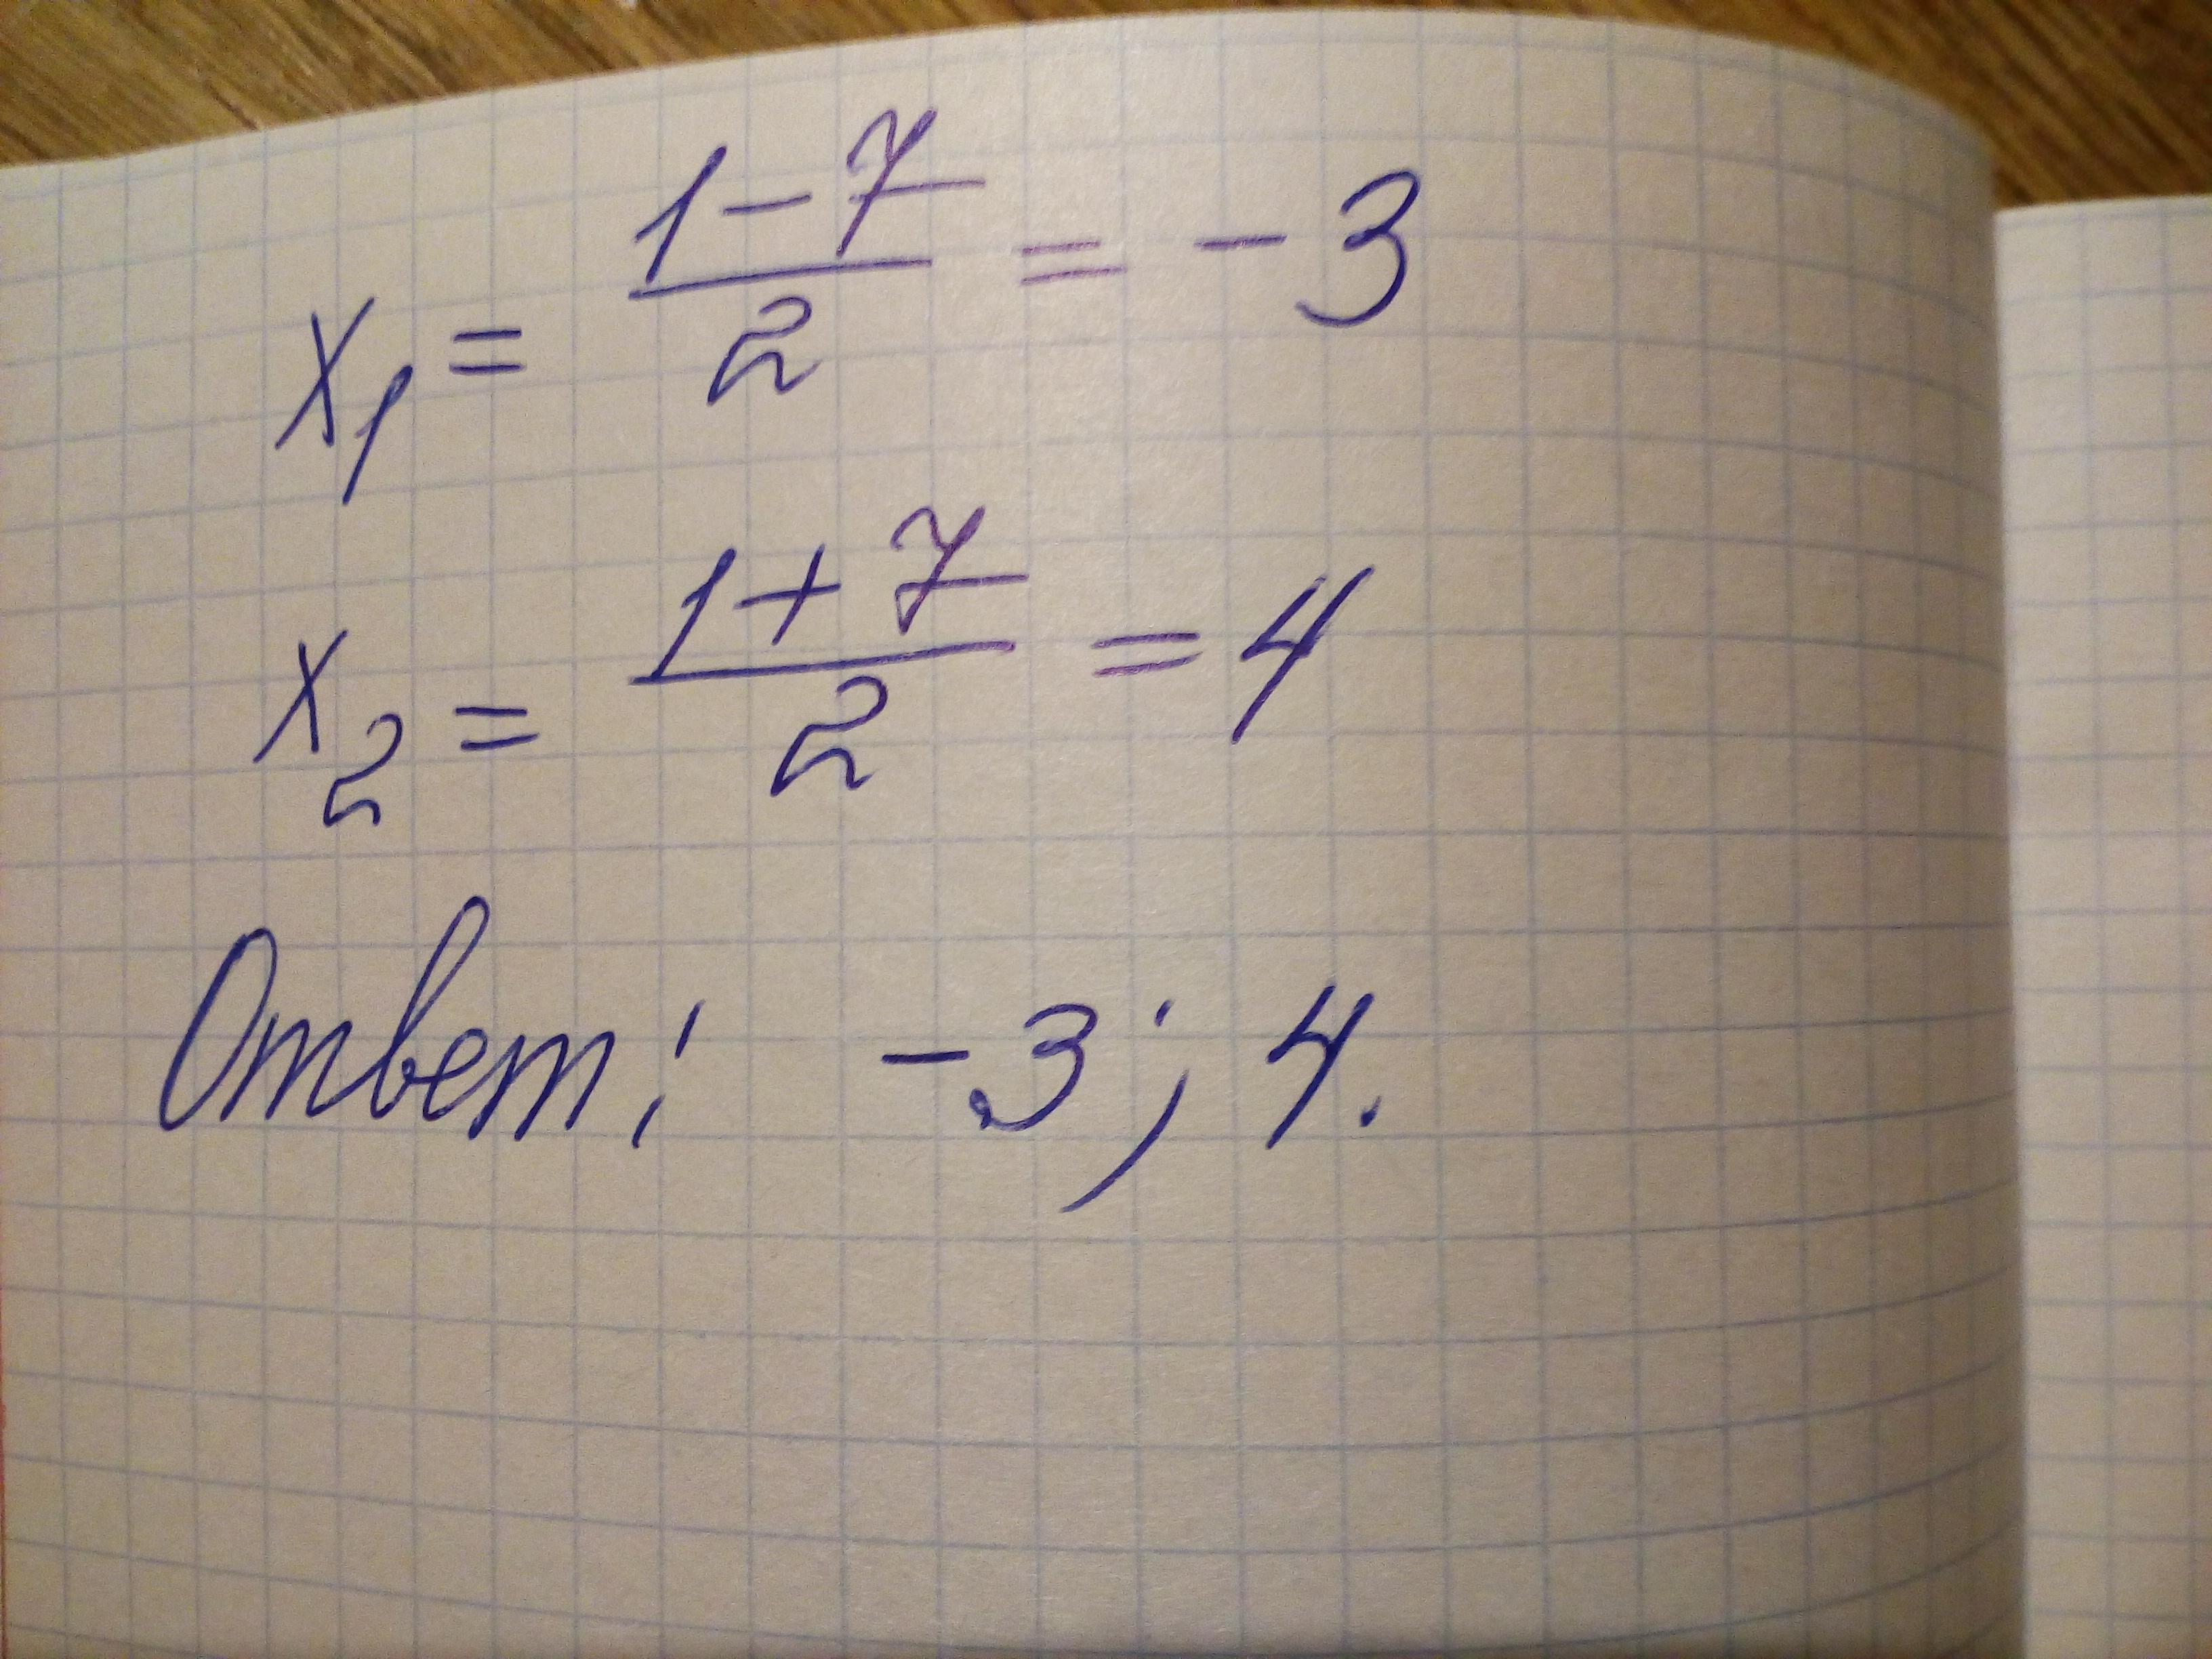 x₁ = (1-7)/2 = -3
x₂ = (1+7)/2 = 4
Ответ: -3; 4.